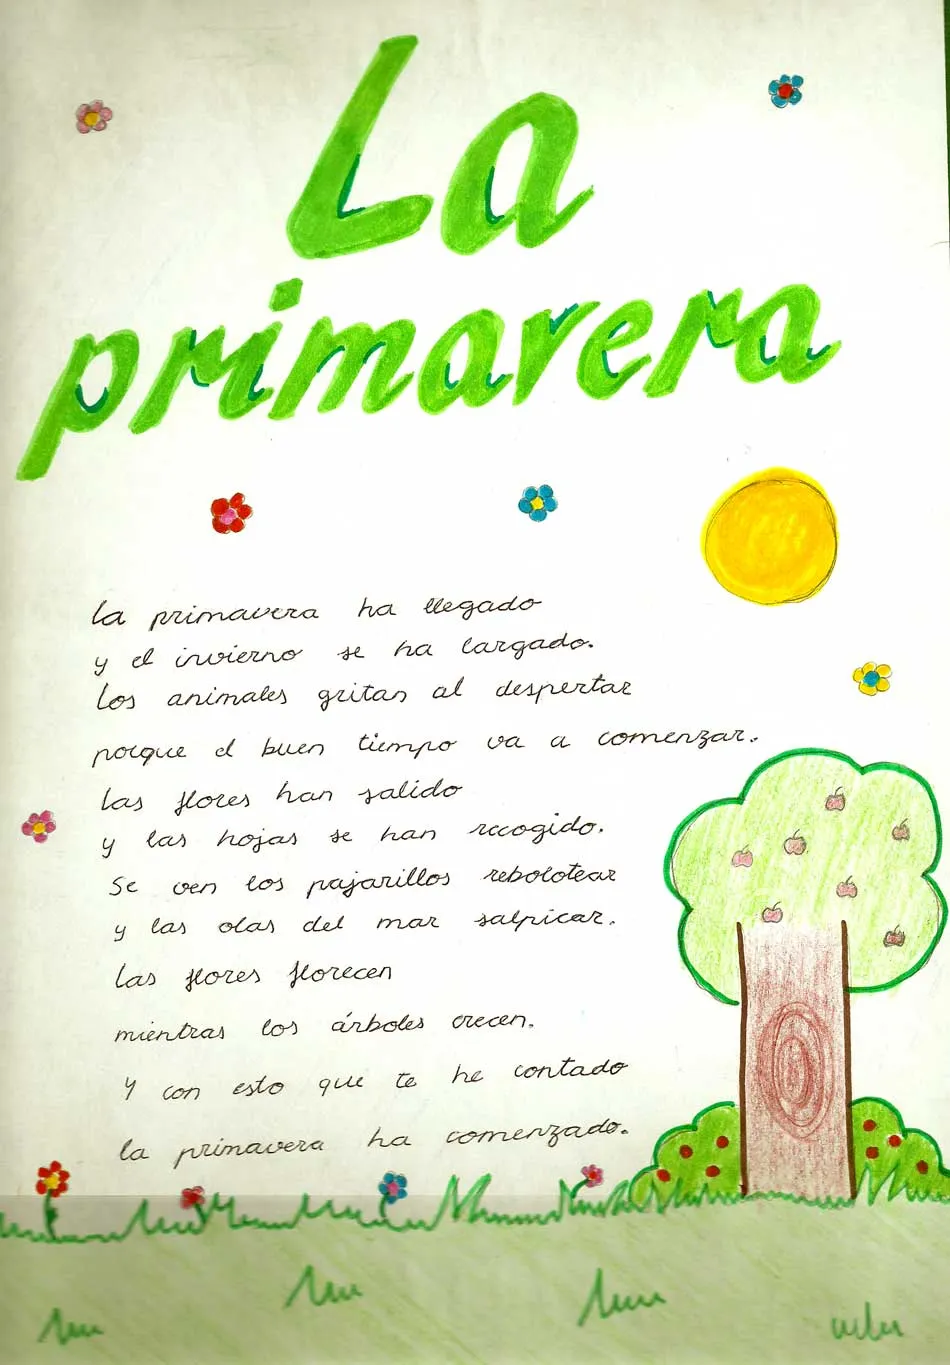 La
primavera
la primavera ha llegado
y el invierno se ha largado.
los animales gritan al despertar
porque el buen tiempo va a comenzar.
las flores han salido
y las hojas se han recogido.
Se ven los pajarillos rebolotear
y las olas del mar salpicar.
las flores florecen
mientras los árboles crecen.
Y con esto que te he contado
la primavera ha comenzado.